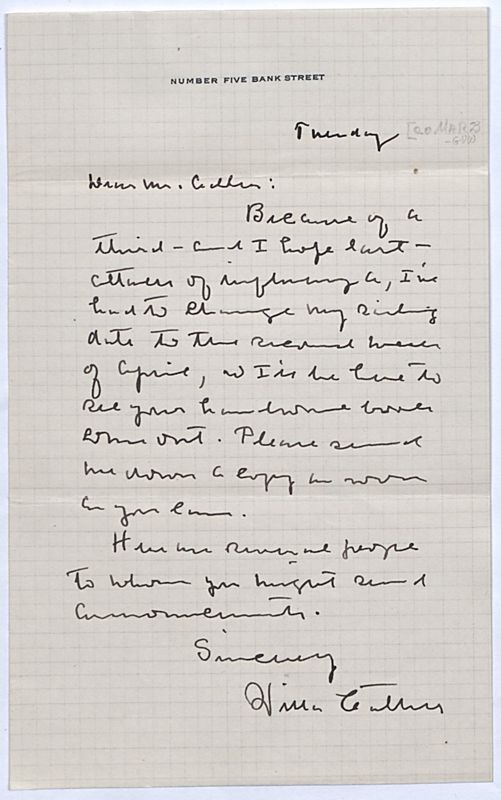 NUMBER FIVE BANK STREET
Tuesday [20 MAR 23
Dear Mr. :
Because of a
third - and I hope last -
attack of influenza, I've
had to change my sailing
date to the second week
of April, so I'll be here to
see your handsome book
come out. Please send
me down a copy as soon
as you can.
Here are several people
to whom you might send
announcements.
Sincerely
Willa Cather